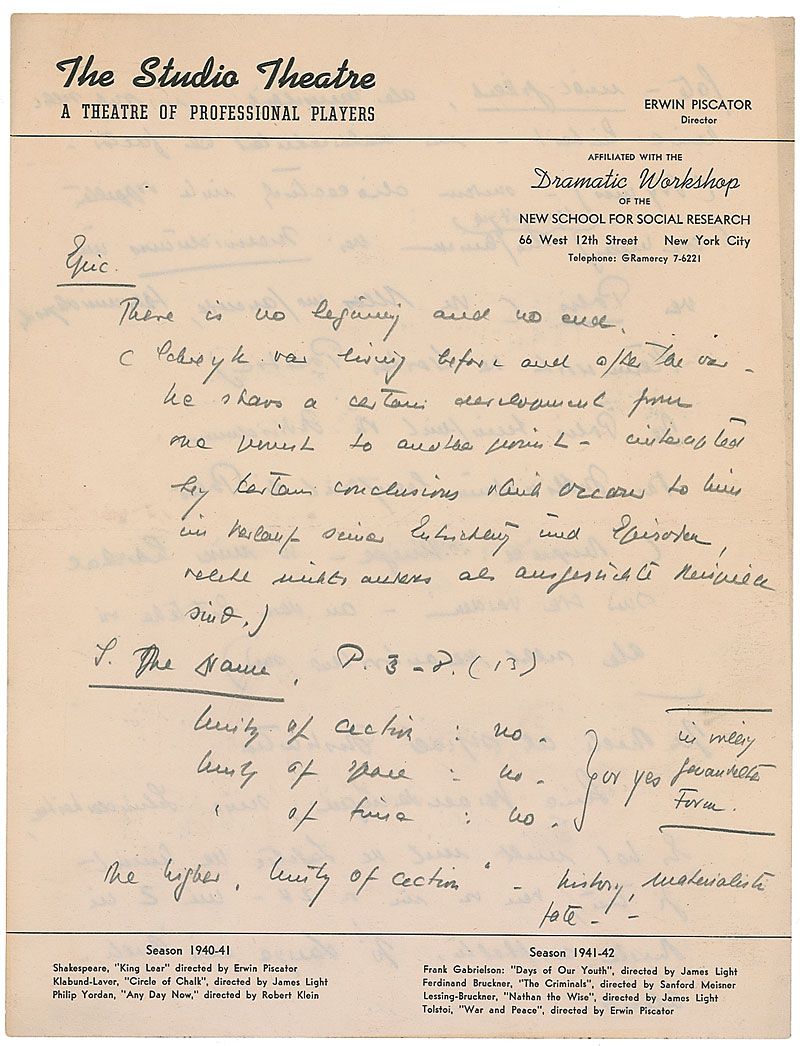 The Studio Theatre
A THEATRE OF PROFESSIONAL PLAYERS
ERWIN PISCATOR
Director
AFFILIATED WITH THE
Dramatic Workshop
OF THE
NEW SCHOOL FOR SOCIAL RESEARCH
66 West 12th Street New York City
Telephone: GRamercy 7-6221
Epic.
There is no beginning and no end.
( was living before and after the war -
he shows a certain development from
one point to another point - interrupted
by certain conclusions which occur to him
im Verlauf seiner und Episoden,
welche nichts anderes als ausgesuchte Beispiele
sind.)
I. The Name, P. 3-8. (13)
Unity of action : no -
Unity of space : no -
" of time : no -
or yes
in völlig
gewandelter
Form.
The higher "Unity of action" - history, materialistic
fate - -
Season 1940-41
Shakespeare, "King Lear" directed by Erwin Piscator
Klabund-Laver, "Circle of Chalk", directed by James Light
Philip Yordan, "Any Day Now," directed by Robert Klein
Season 1941-42
Frank Gabrielson: "Days of Our Youth", directed by James Light
Ferdinand Bruckner, "The Criminals", directed by Sanford Meisner
Lessing-Bruckner, "Nathan the Wise", directed by James Light
Tolstoi, "War and Peace", directed by Erwin Piscator